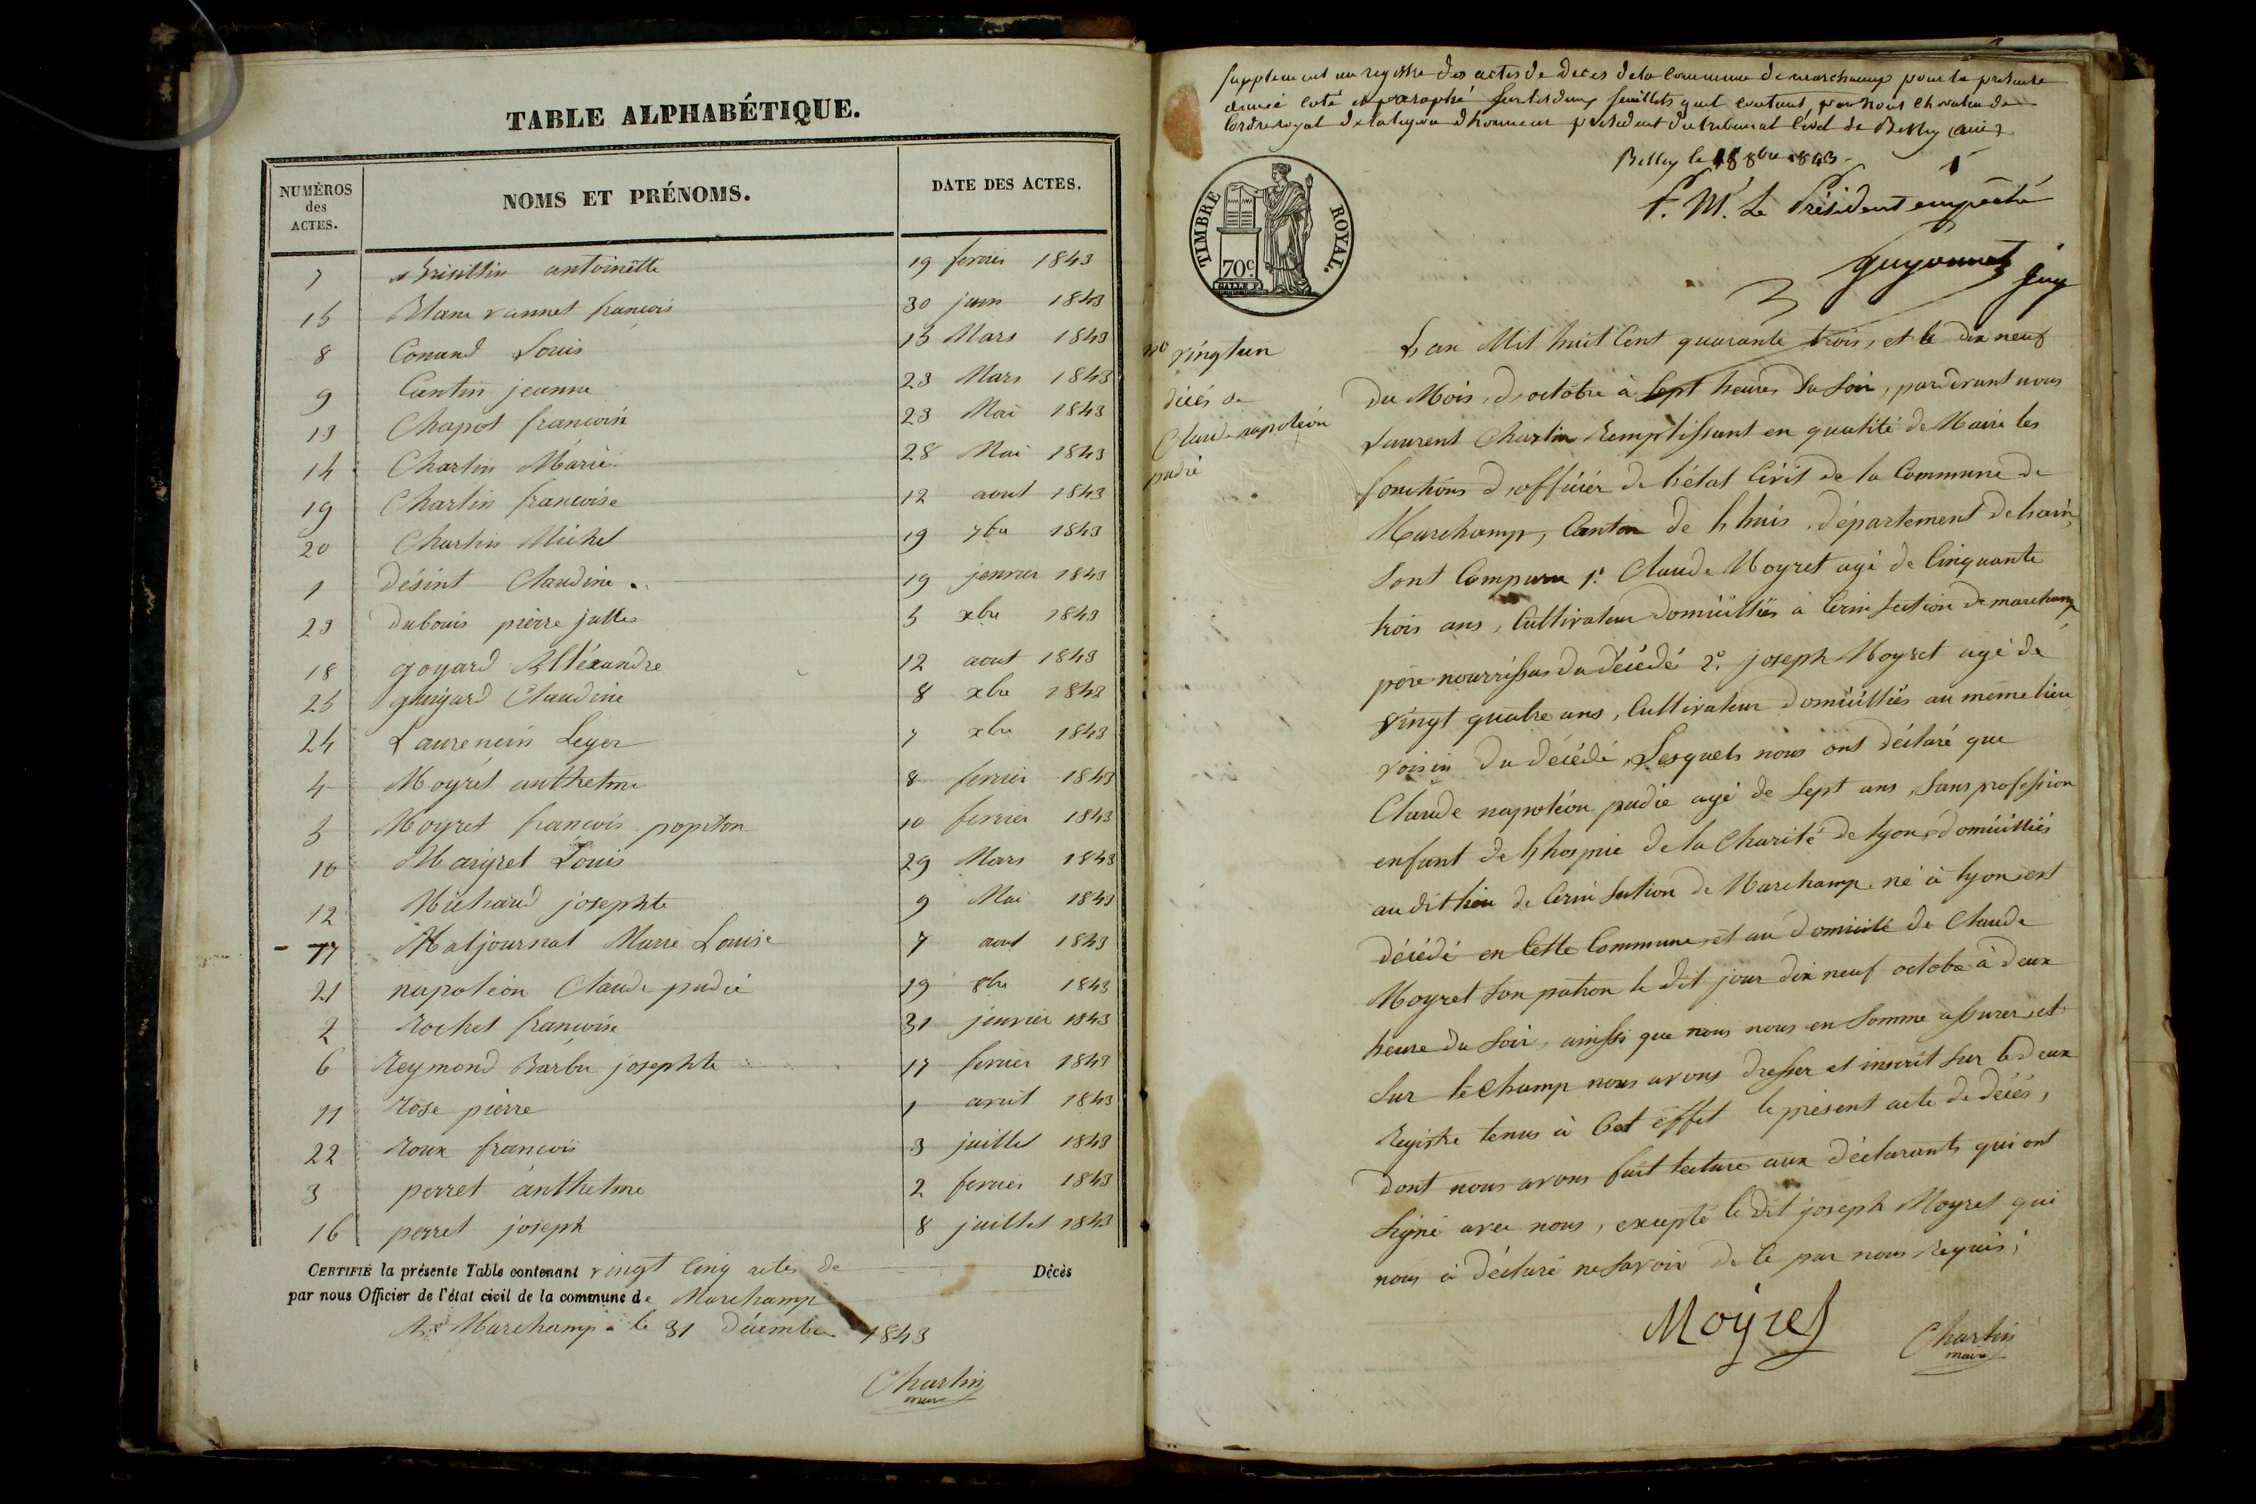 TABLE ALPHABÉTIQUE.
NUMÉROS des ACTES. NOMS ET PRÉNOMS. DATE DES ACTES.
7 antoinette 19 fevrier 1843
15 Blanc vannet francois 30 juin 1843
8 Conand Louis 15 Mars 1843
9 Cantin jeanne 23 Mars 1843
13 Chapot francois 23 Mai 1843
14 Charlin Marie 28 Mai 1843
19 Charlin francoise 12 aout 1843
20 Charlin Michel 19 7bre 1843
1 désint Claudine 19 jenvier 1843
23 dubouis pierre julles 5 xbre 1843
18 goyard Alléxandre 12 aout 1843
25 guigard Claudine 8 xbre 1843
24 Laurencin Leger 7 xbre 1843
4 Moyret anthelme 8 fevrier 1843
5 Moyret francois popiton 10 fevrier 1843
10 Mayret Louis 29 Mars 1843
12 Michaud josephte 9 Mai 1843
- 17 Maljournal Marie Louise 7 aout 1843
21 napoléon Claude padie 19 8bre 1843
2 Rochet francoise 31 jenvier 1843
6 Reymond Barbe josephte 17 fevrier 1843
11 Rose pierre 1 avril 1843
22 Roux francois 3 juillet 1843
3 perret anthelme 2 fevrier 1843
16 perret joseph 8 juillet 1843
CERTIFIÉ la présente Table contenant vingt Cinq actes de Décès
par nous Officier de l'état civil de la commune de Marchamp
Marchamp le 31 décembre 1843
Charlin
maire
supplement au registre des actes de Deces dela Commune de marchamp pour la presente
année coté et paraphé sur les deux feuillets quil contient, par nous Chevalier de
lordre royal de la legion dhonneur president du tribunal Civil de Belley (ain)
Belley le 18 8bre 1843
P. M. Le Président empêché
guyonnet juge
TIMBRE ROYAL.
70c.
no vingtun
décés de
Claude napoléon
padie
L an Mil huit Cent quarante trois, et le dix neuf
du Mois d'octobre à Sept heures du Soir, pardevant nous
Laurent Charlin Remplissant en qualité de Maire les
fonctions d'officier de l'état Civil de la Commune de
Marchamp, Canton de Lhuis, département de Lain,
Sont Comparu 1° Claude Moyret agé de Cinquante
trois ans, Cultivateur domicilliés à Cerin Section de marchamp
père nourrissas du décédé 2° joseph Moyret agé de
vingt quatre ans, Cultivateur domicilliés au même lieu
voisin du décédé, Lesquels nous ont déclaré que
Claude napoléon padie agé de Sept ans, Sans profession
enfant de Lhospice de la Charité de lyon, domicilliés
au dit lieu de Cerin Section de Marchamp né à lyon, est
décédé en Cette Commune, et au domicile de Claude
Moyret Son patron le dit jour dix neuf octobre à deux
heure du Soir, ainssi que nous nous en Somme assurer, et
Sur le Champ nous avons dresser et inscrit Sur le deux
Registre tenus à Cet effet le présent acte de décés,
dont nous avons fait lecture aux déclarants qui ont
Signé avec nous, excepté le dit joseph Moyret qui
nous à déclaré ne Savoir de Ce par nous Requis;
Moyret
Charlin
maire